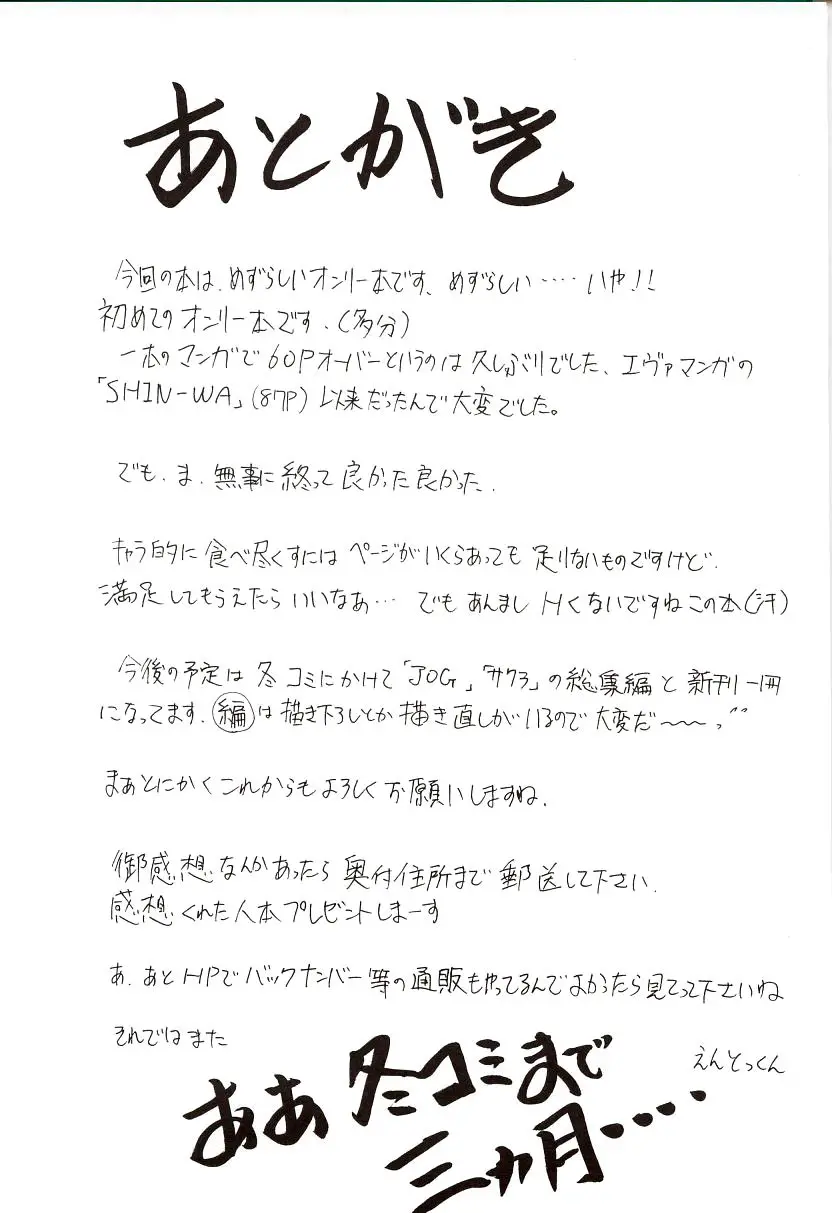 あとがき
今回の本は、めずらしいオンリー本です、めずらしい‥‥いや!!
初めてのオンリー本です、(多分)
一本のマンガで60Pオーバーというのは久しぶりでした、エヴァマンガの
「SHIN-WA」(87P)以来だったんで大変でした。
でも、ま、無事に終って良かった良かった、
キャラ的に食べ尽くすにはページがいくらあっても足りないものですけど、
満足してもらえたらいいなぁ… でもあんましHくないですねこの本(汗)
今後の予定は冬コミにかけて「JOG」「サクラ」の総集編と新刊一冊
になってます、編は描き下ろしとか描き直しがいるので大変だ〜〜っ
まぁとにかくこれからもよろしくお願いしますね、
御感想なんかあったら奥付住所まで郵送して下さい、
感想くれた人本プレゼントしまーす
あ、あとHPでバックナンバー等の通販もやってるんでよかったら見てって下さいね
それではまた
えんとっくん
ああ冬コミまで
三ヵ月‥‥